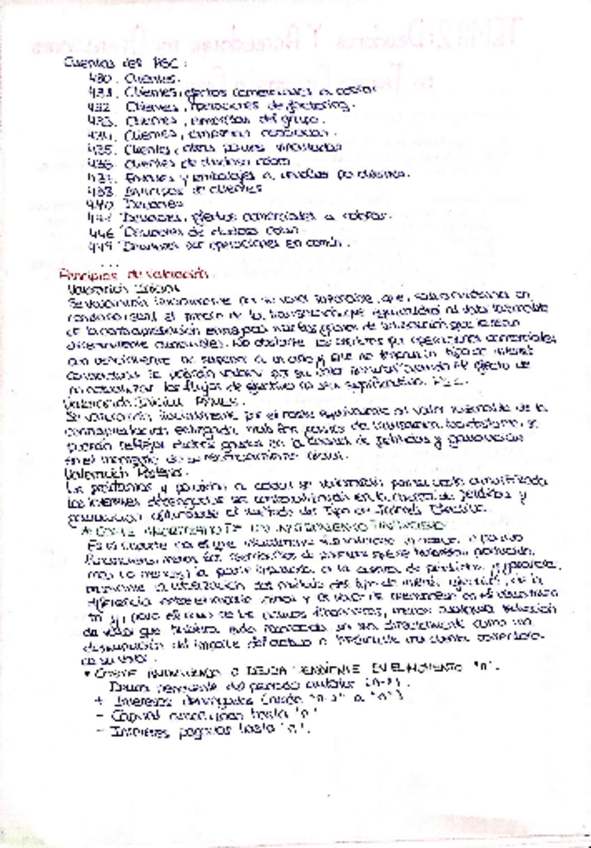 Cuentas del PGC:
430. Clientes.
431. Clientes, efectos comerciales a cobrar
432. Clientes, operaciones de factoring.
433. Clientes, empresas del grupo.
434. Clientes, empresas asociadas.
435. Clientes, otras partes vinculadas
436. Clientes de dudoso cobro
437. Envases y embalajes a devolver por clientes.
438. Anticipos de clientes
440. Deudores
441. Deudores, efectos comerciales a cobrar.
446. Deudores de dudoso cobro
449. Deudores por operaciones en común.
...
Principios de valoración
Valoración Inicial
Se valorarán inicialmente por su valor razonable, que, salvo evidencia en
contrario, será el precio de la transacción, que equivaldrá al valor razonable
de la contraprestación entregada más los gastos de transacción que le sean
directamente atribuibles. No obstante, los créditos por operaciones comerciales
con vencimiento no superior a un año y que no tengan un tipo de interés
contractual se podrán valorar por su valor nominal cuando el efecto de
no actualizar los flujos de efectivo no sea significativo.
Valoración Inicial
Se valorarán inicialmente por el coste equivalente al valor razonable de la
contraprestación entregada, más los gastos de transacción. No obstante, se
podrán reflejar dichos gastos en la cuenta de pérdidas y ganancias
en el momento de su reconocimiento inicial.
Valoración Posterior
Los préstamos y partidas a cobrar se valorarán por su coste amortizado
los intereses devengados se contabilizarán en la cuenta de pérdidas y
ganancias utilizando el método del tipo de interés efectivo.
COSTE AMORTIZADO DE UN INSTRUMENTO FINANCIERO
Es el importe por el que inicialmente fue valorado un activo o pasivo
financiero, menos los reembolsos de principal que se hubieran producido,
más o menos, la parte imputada en la cuenta de pérdidas y ganancias,
mediante la utilización del método del tipo de interés efectivo, de la
diferencia entre el importe inicial y el valor de reembolso en el vencimien-
to y, para el caso de los activos financieros, menos cualquier reducción
de valor que hubiera sido reconocida ya sea directamente como una
disminución del importe del activo o mediante una cuenta correctora
de su valor.
COSTE AMORTIZADO O DEUDA PENDIENTE EN EL MOMENTO "n".
Deuda pendiente del periodo anterior (n-1).
+ Intereses devengados (desde "n-1" a "n")
- Capital amortizado hasta "n"
- Intereses pagados hasta "n".